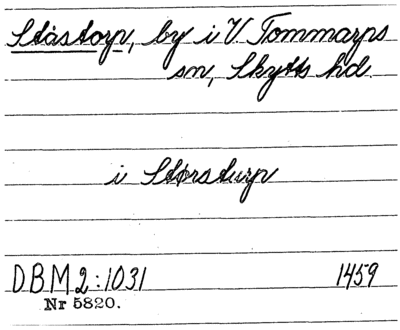 Ståstorp, by i V Tommarps
sn, Skytts hd.
i Størsturp
DBM 2:1031 1459
Nr 5820.